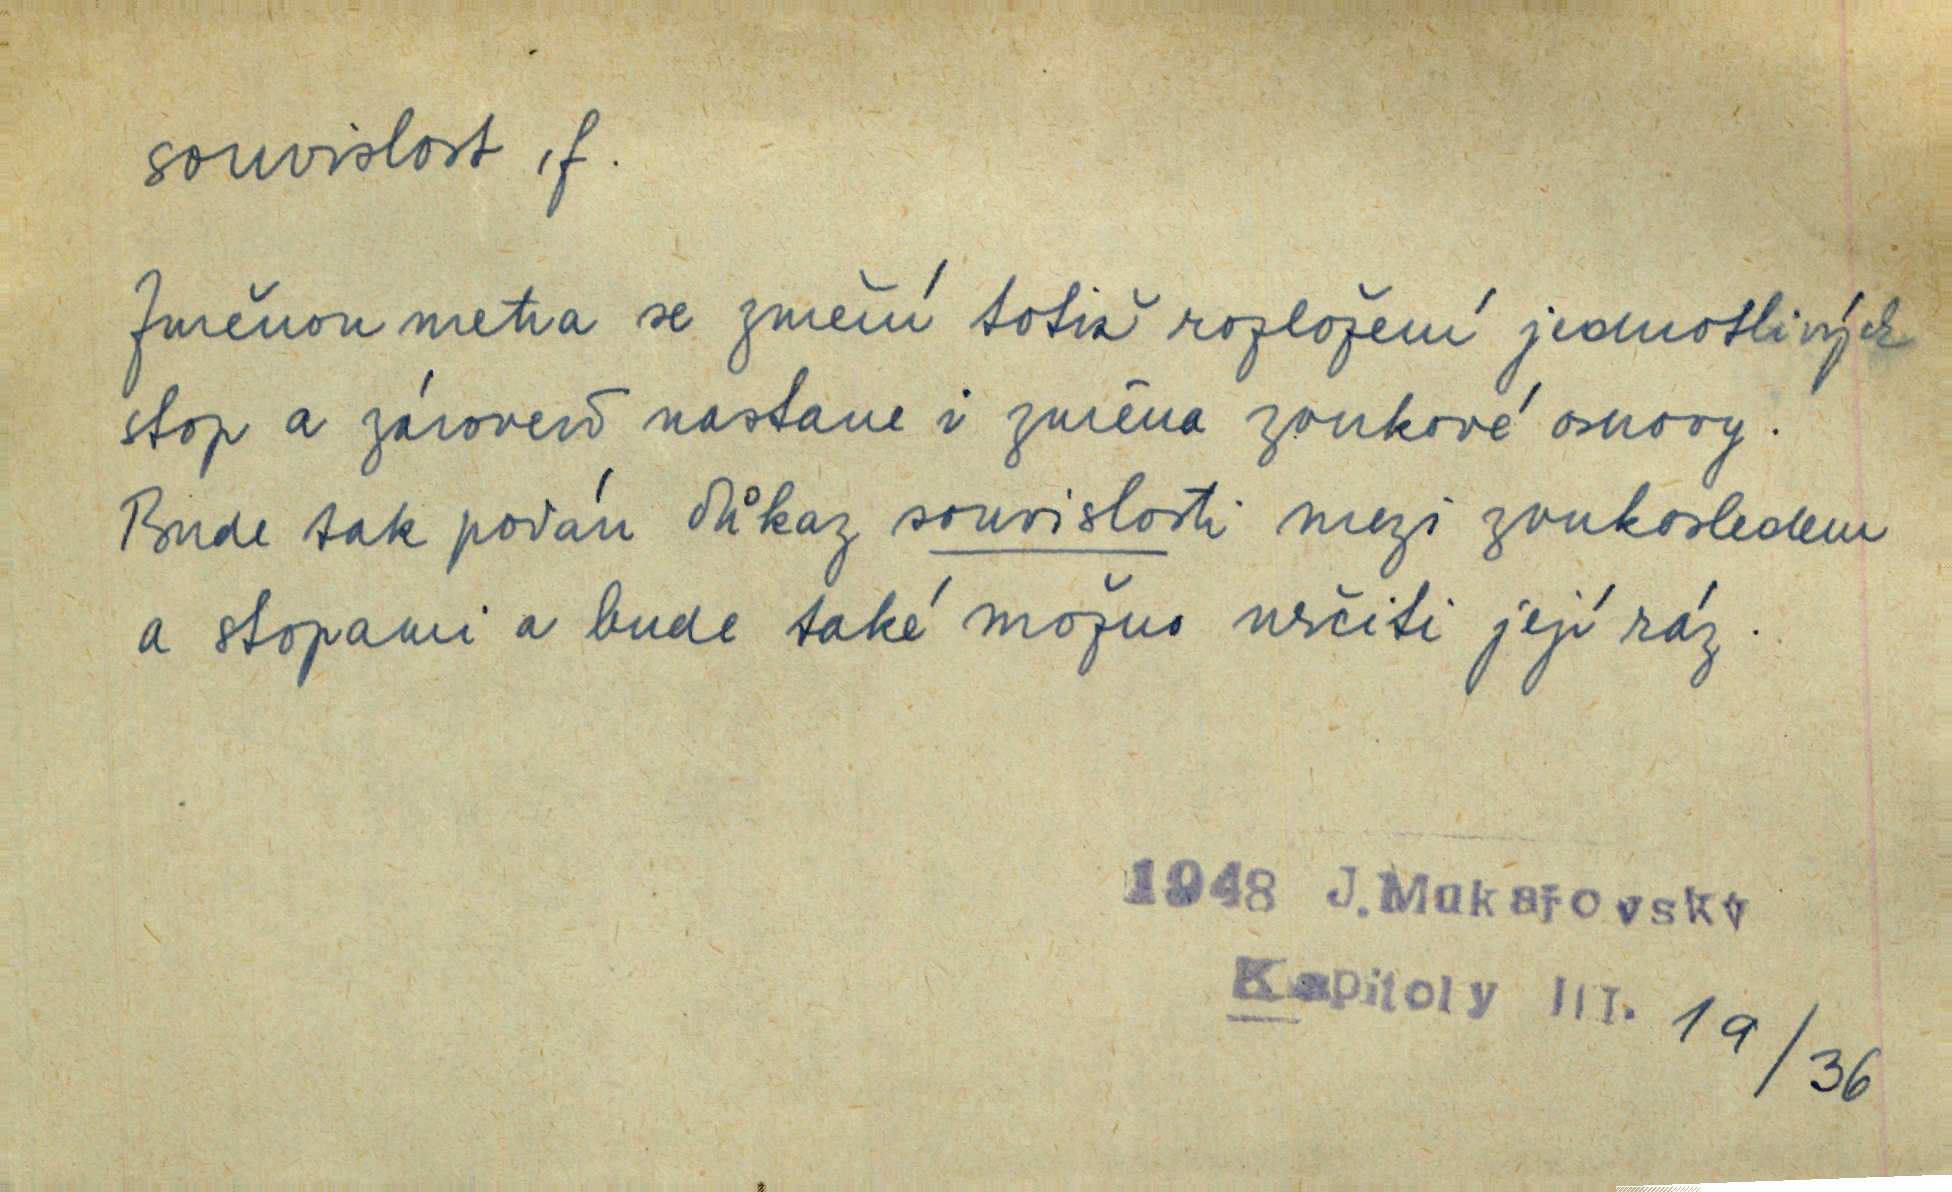 souvislost, f.
Změnou metra se změní totiž rozložení jednotlivých
stop a zároveň nastane i změna zvukové osnovy.
Bude tak podán důkaz souvislosti mezi zvukosledem
a stopami a bude také možno určiti její ráz.
1948 J.Mukařovský
Kapitoly III. 19/36